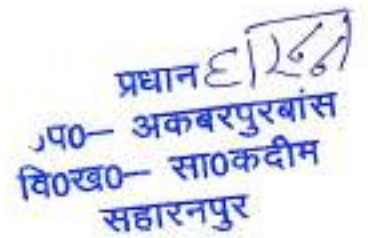 प्रधान
प0– अकबरपुरबांस
वि0ख0– सा0कदीम
सहारनपुर